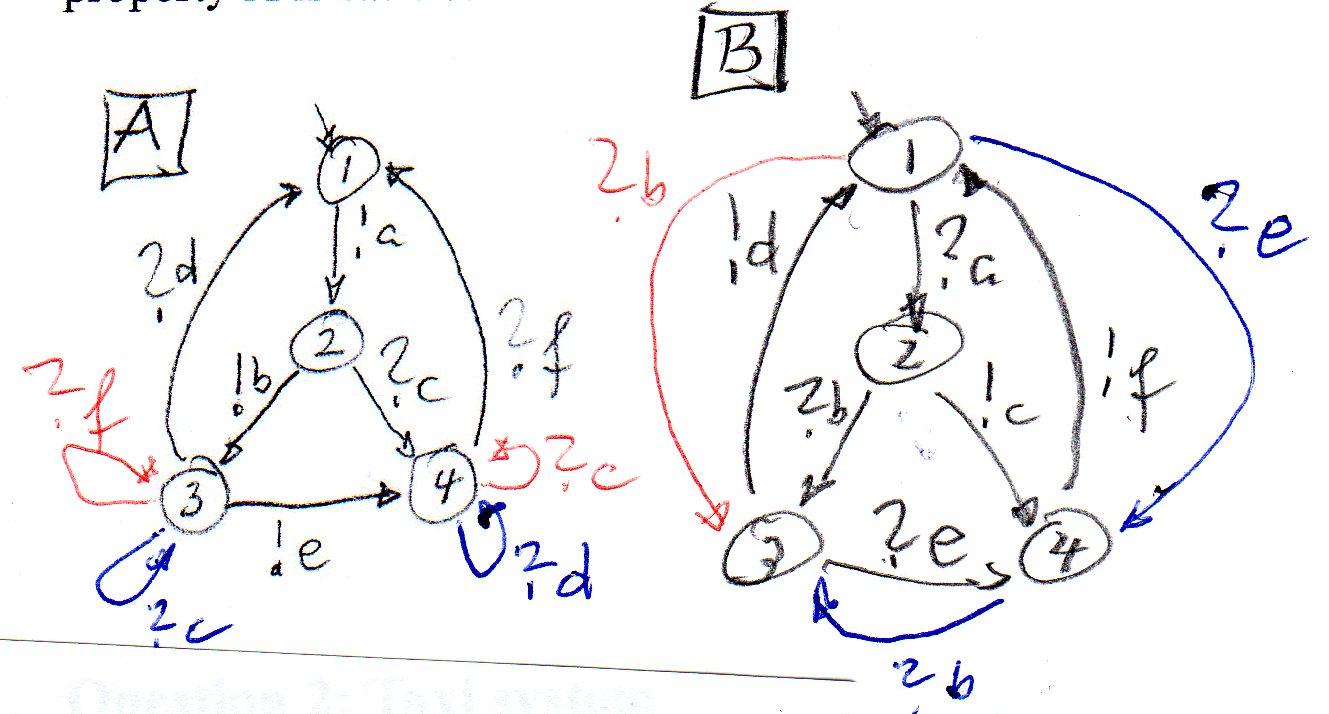 property
A
B
1
1
?b
?e
?d
!a
!d
?a
2
2
?f
!b
?c
?f
?b
!c
!f
3
4
?c
3
4
!e
?e
?c
?d
?b
Question 2: Taxi system